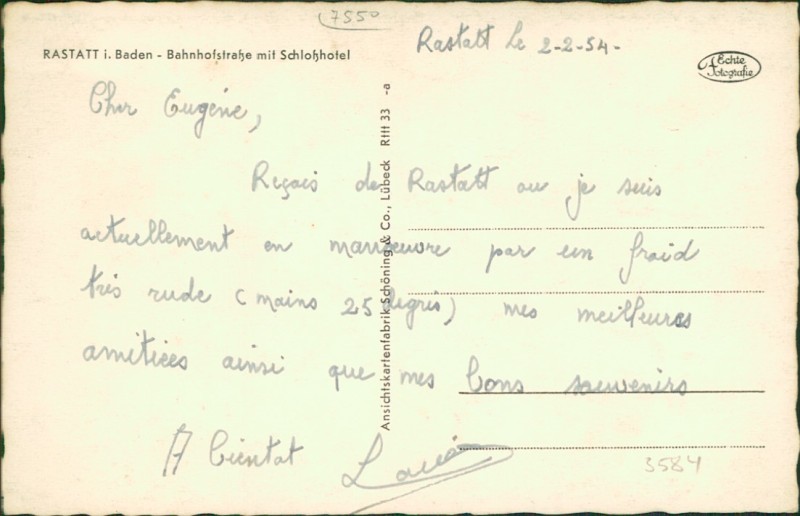 7550
RASTATT i. Baden - Bahnhofstraße mit Schloßhotel
Rastatt le 2-2-54-
Echte
Fotografie
Cher Eugène,
Reçois de Rastatt ou je suis
actuellement en manoeuvre par un froid
très rude (moins 25 degrés) mes meilleures
amitiées ainsi que mes bons souvenirs
A bientot
Ansichtskartenfabrik Schöning & Co., Lübeck Rttt 33 -a
3584